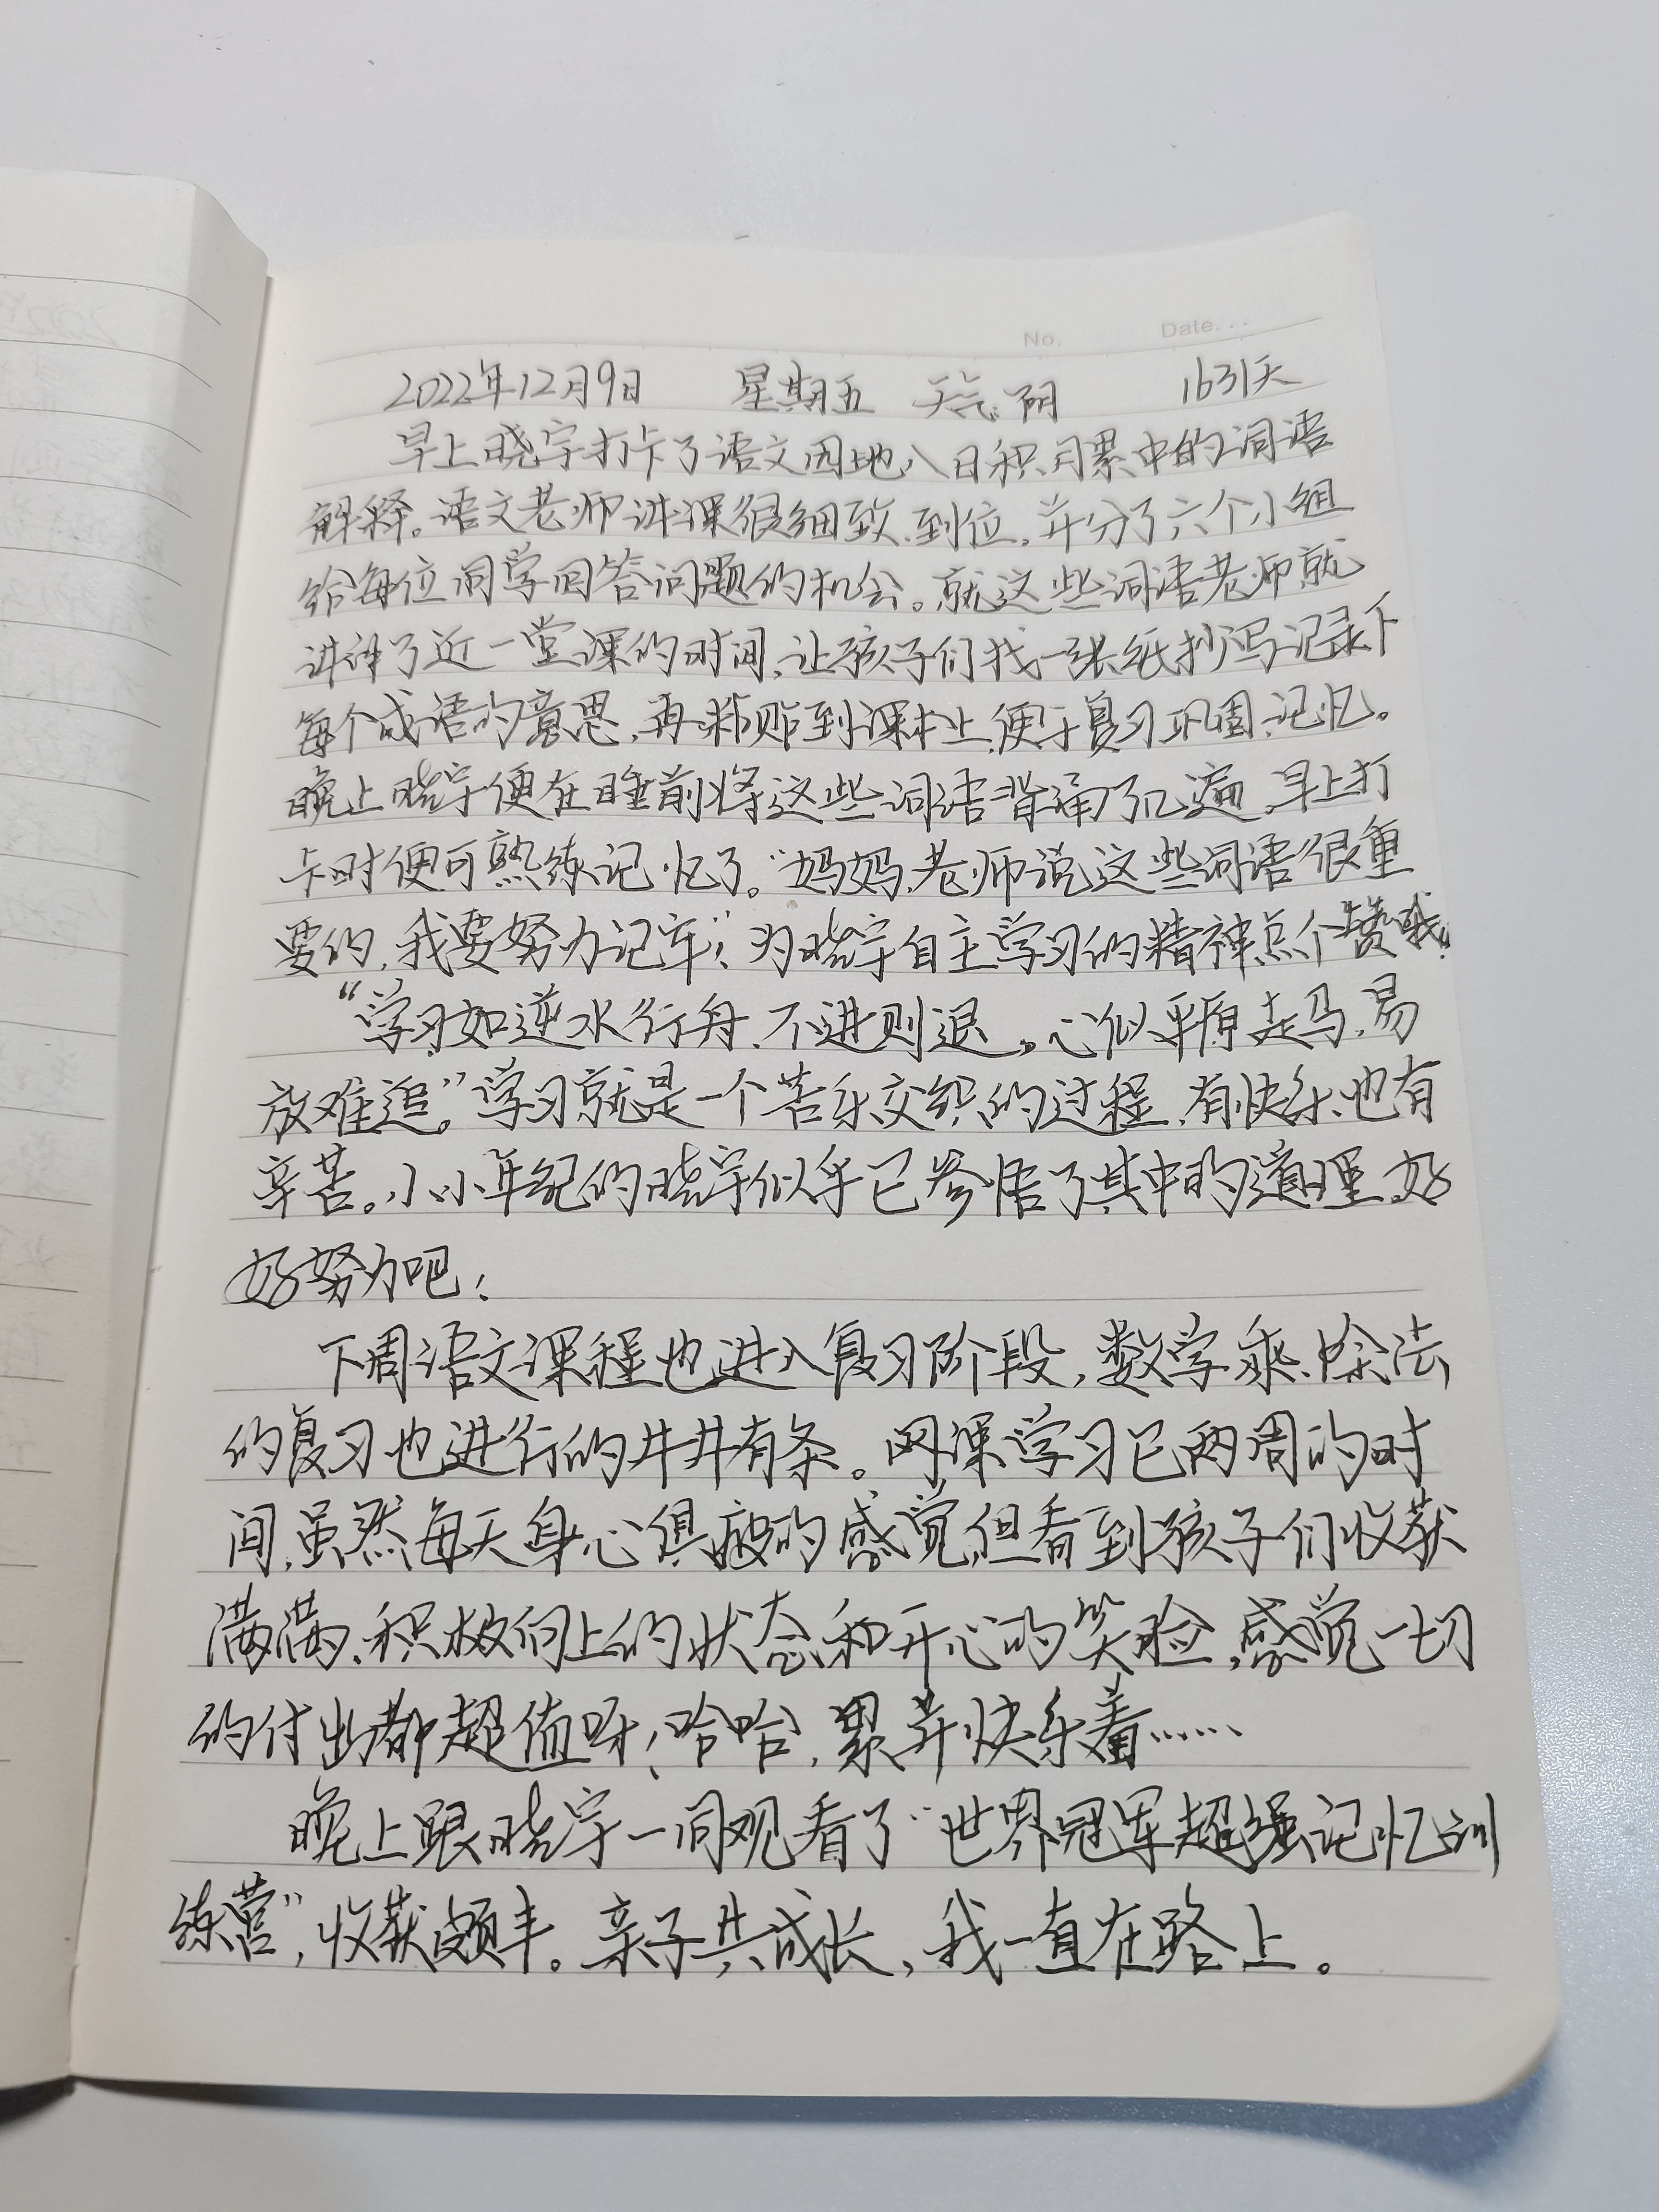 No.
Date.
2022年12月9日 星期五 天气:阴 1631天
早上晓宇打卡了语文园地八日积月累中的词语
解释。语文老师讲课很细致、到位,并分了六个小组
给每位同学回答问题的机会。就这些词语老师就
讲解了近一堂课的时间,让孩子们找一张纸抄写记录下
每个成语的意思,再粘贴到课本上,便于复习巩固、记忆。
晚上晓宇便在睡前将这些词语背诵了几遍,早上打
卡时便可熟练记忆了。“妈妈,老师说这些词语很重
要的,我要努力记牢!”为晓宇自主学习的精神点个赞哦!
“学习如逆水行舟,不进则退。心似平原走马,易
放难追。”学习就是一个苦乐交织的过程,有快乐,也有
辛苦。小小年纪的晓宇似乎已参悟了其中的道理,好
好努力吧!
下周语文课程也进入复习阶段,数学乘、除法
的复习也进行的井井有条。网课学习已两周的时
间,虽然每天身心俱疲的感觉,但看到孩子们收获
满满、积极向上的状态和开心的笑脸,感觉一切
的付出都超值呀!哈哈,累并快乐着……
晚上跟晓宇一同观看了“世界冠军超强记忆训
练营”,收获颇丰。亲子共成长,我一直在路上。